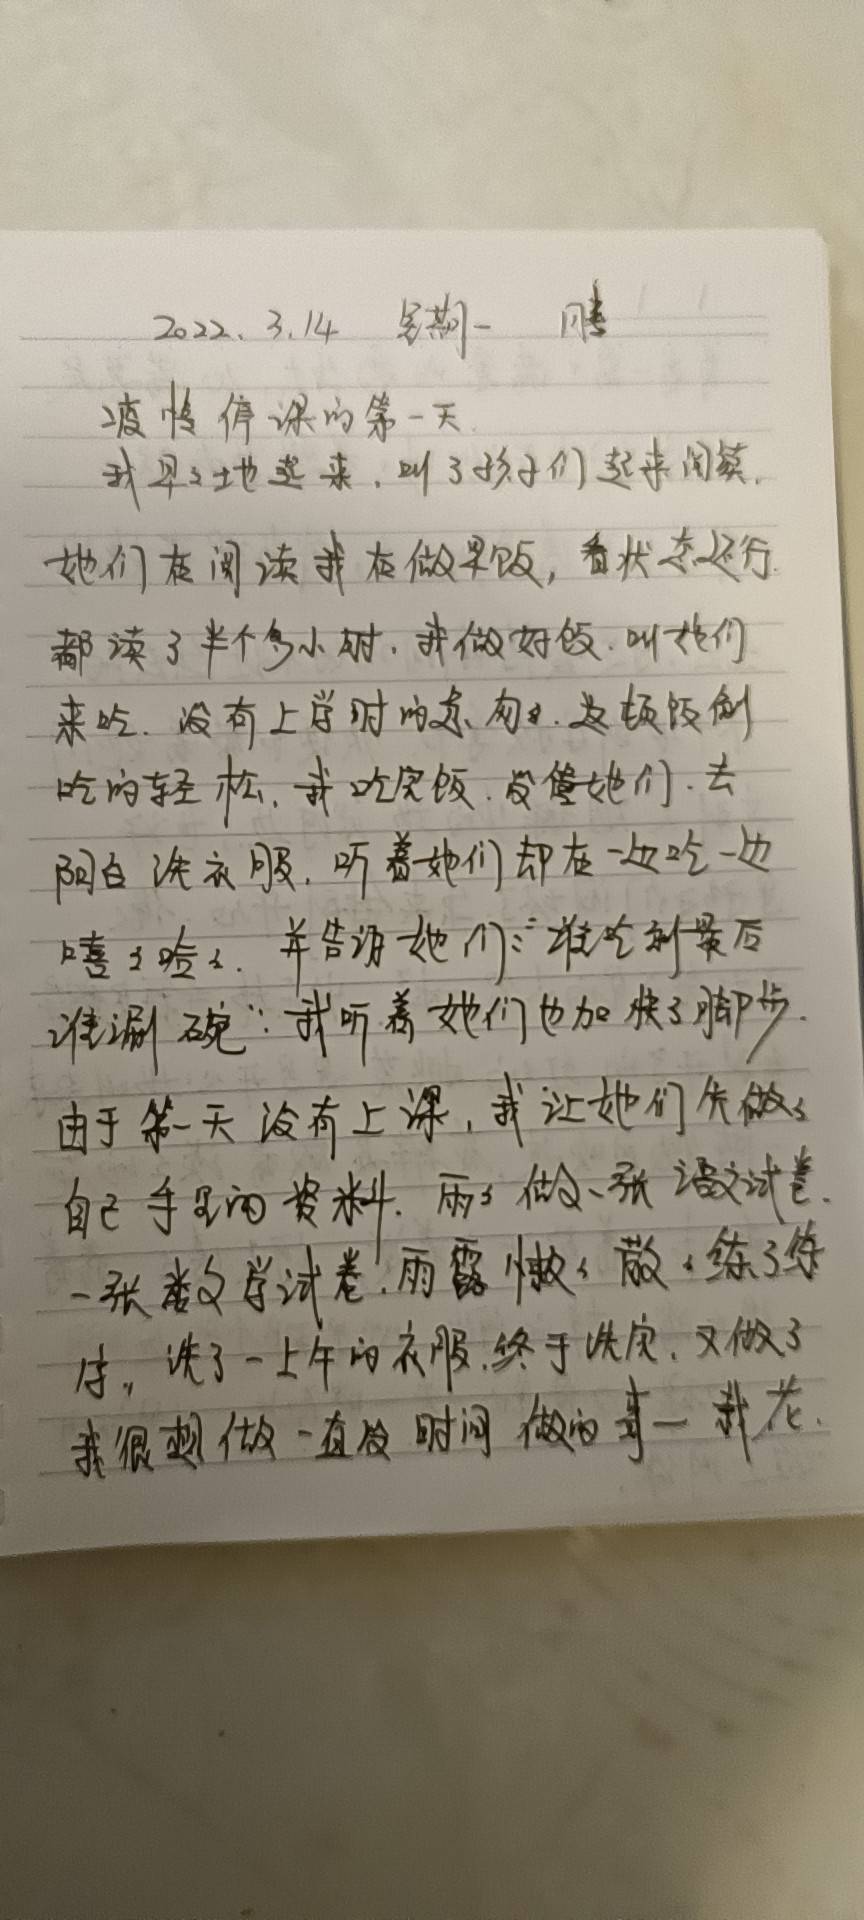 2022.3.14 星期一 晴
疫情停课的第一天.
我早々地起来,叫了孩子们起来阅读,
她们在阅读我在做早饭,看状态还行.
都读了半个多小时.我做好饭.叫她们
来吃.没有上学时的匆々.这顿饭倒
吃的轻松,我吃完饭.没催她们.去
阳台洗衣服,听着她们却在一边吃一边
嘻々哈々.并告诉她们:“谁吃到最后
谁涮碗”:我听着她们也加快了脚步.
由于第一天没有上课,我让她们先做々
自己手里的资料.雨々做了一张语文试卷.
一张数学试卷.雨露懒々散々练了练
字,,洗了一上午的衣服.终于洗完.又做了
我很想做一直没时间做的事一 栽花.